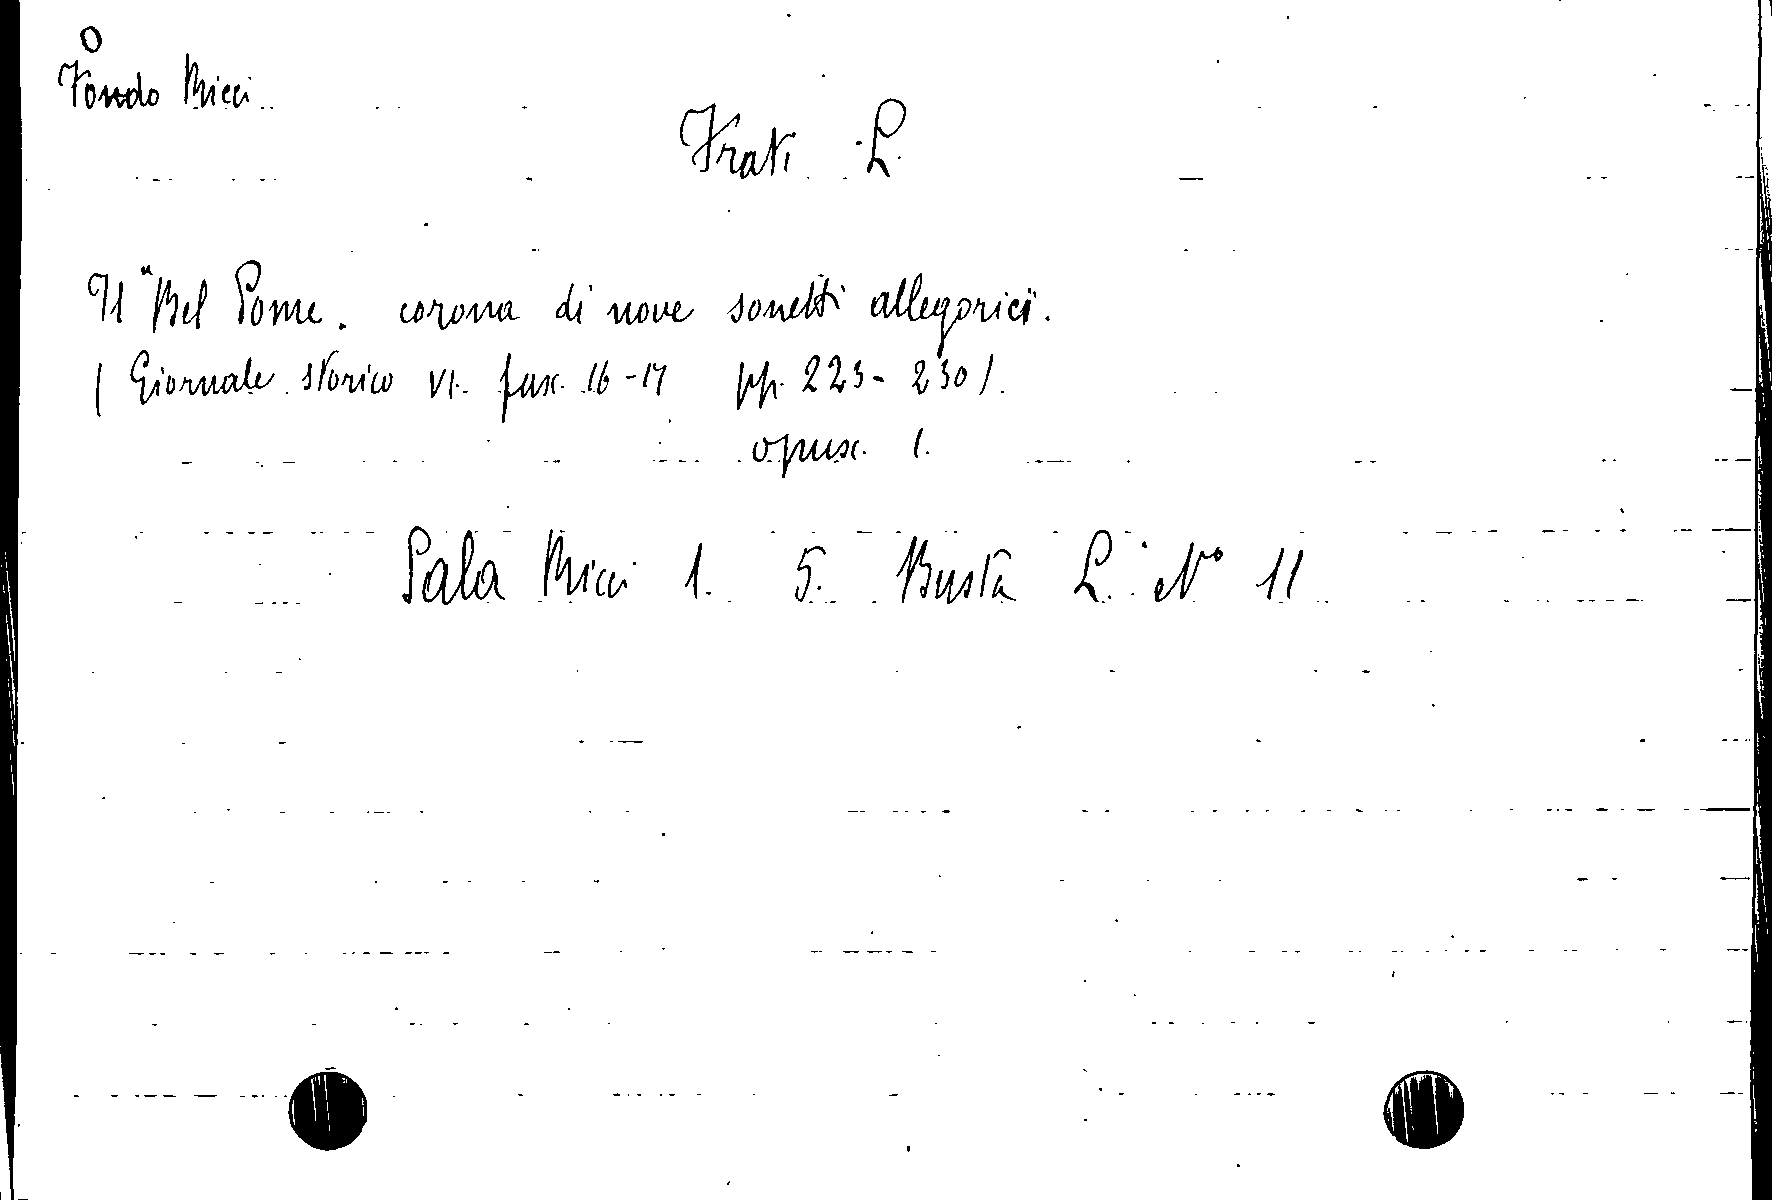 O
Fondo Ricci
Frati L.
Il "Bel Pome. corona di nove sonetti allegorici.
( Giornale storico VI. fasc. 16-17 pp. 223-230).
opusc. 1.
Sala Ricci 1. 5. Busta L. No 11